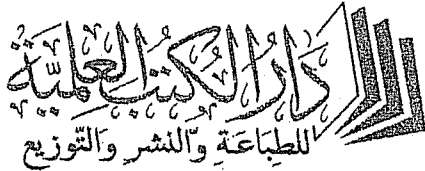 دَارُ الكُتُب العِلميَّة
للطِبَاعَةِ وَالنشرِ وَالتّوزيع